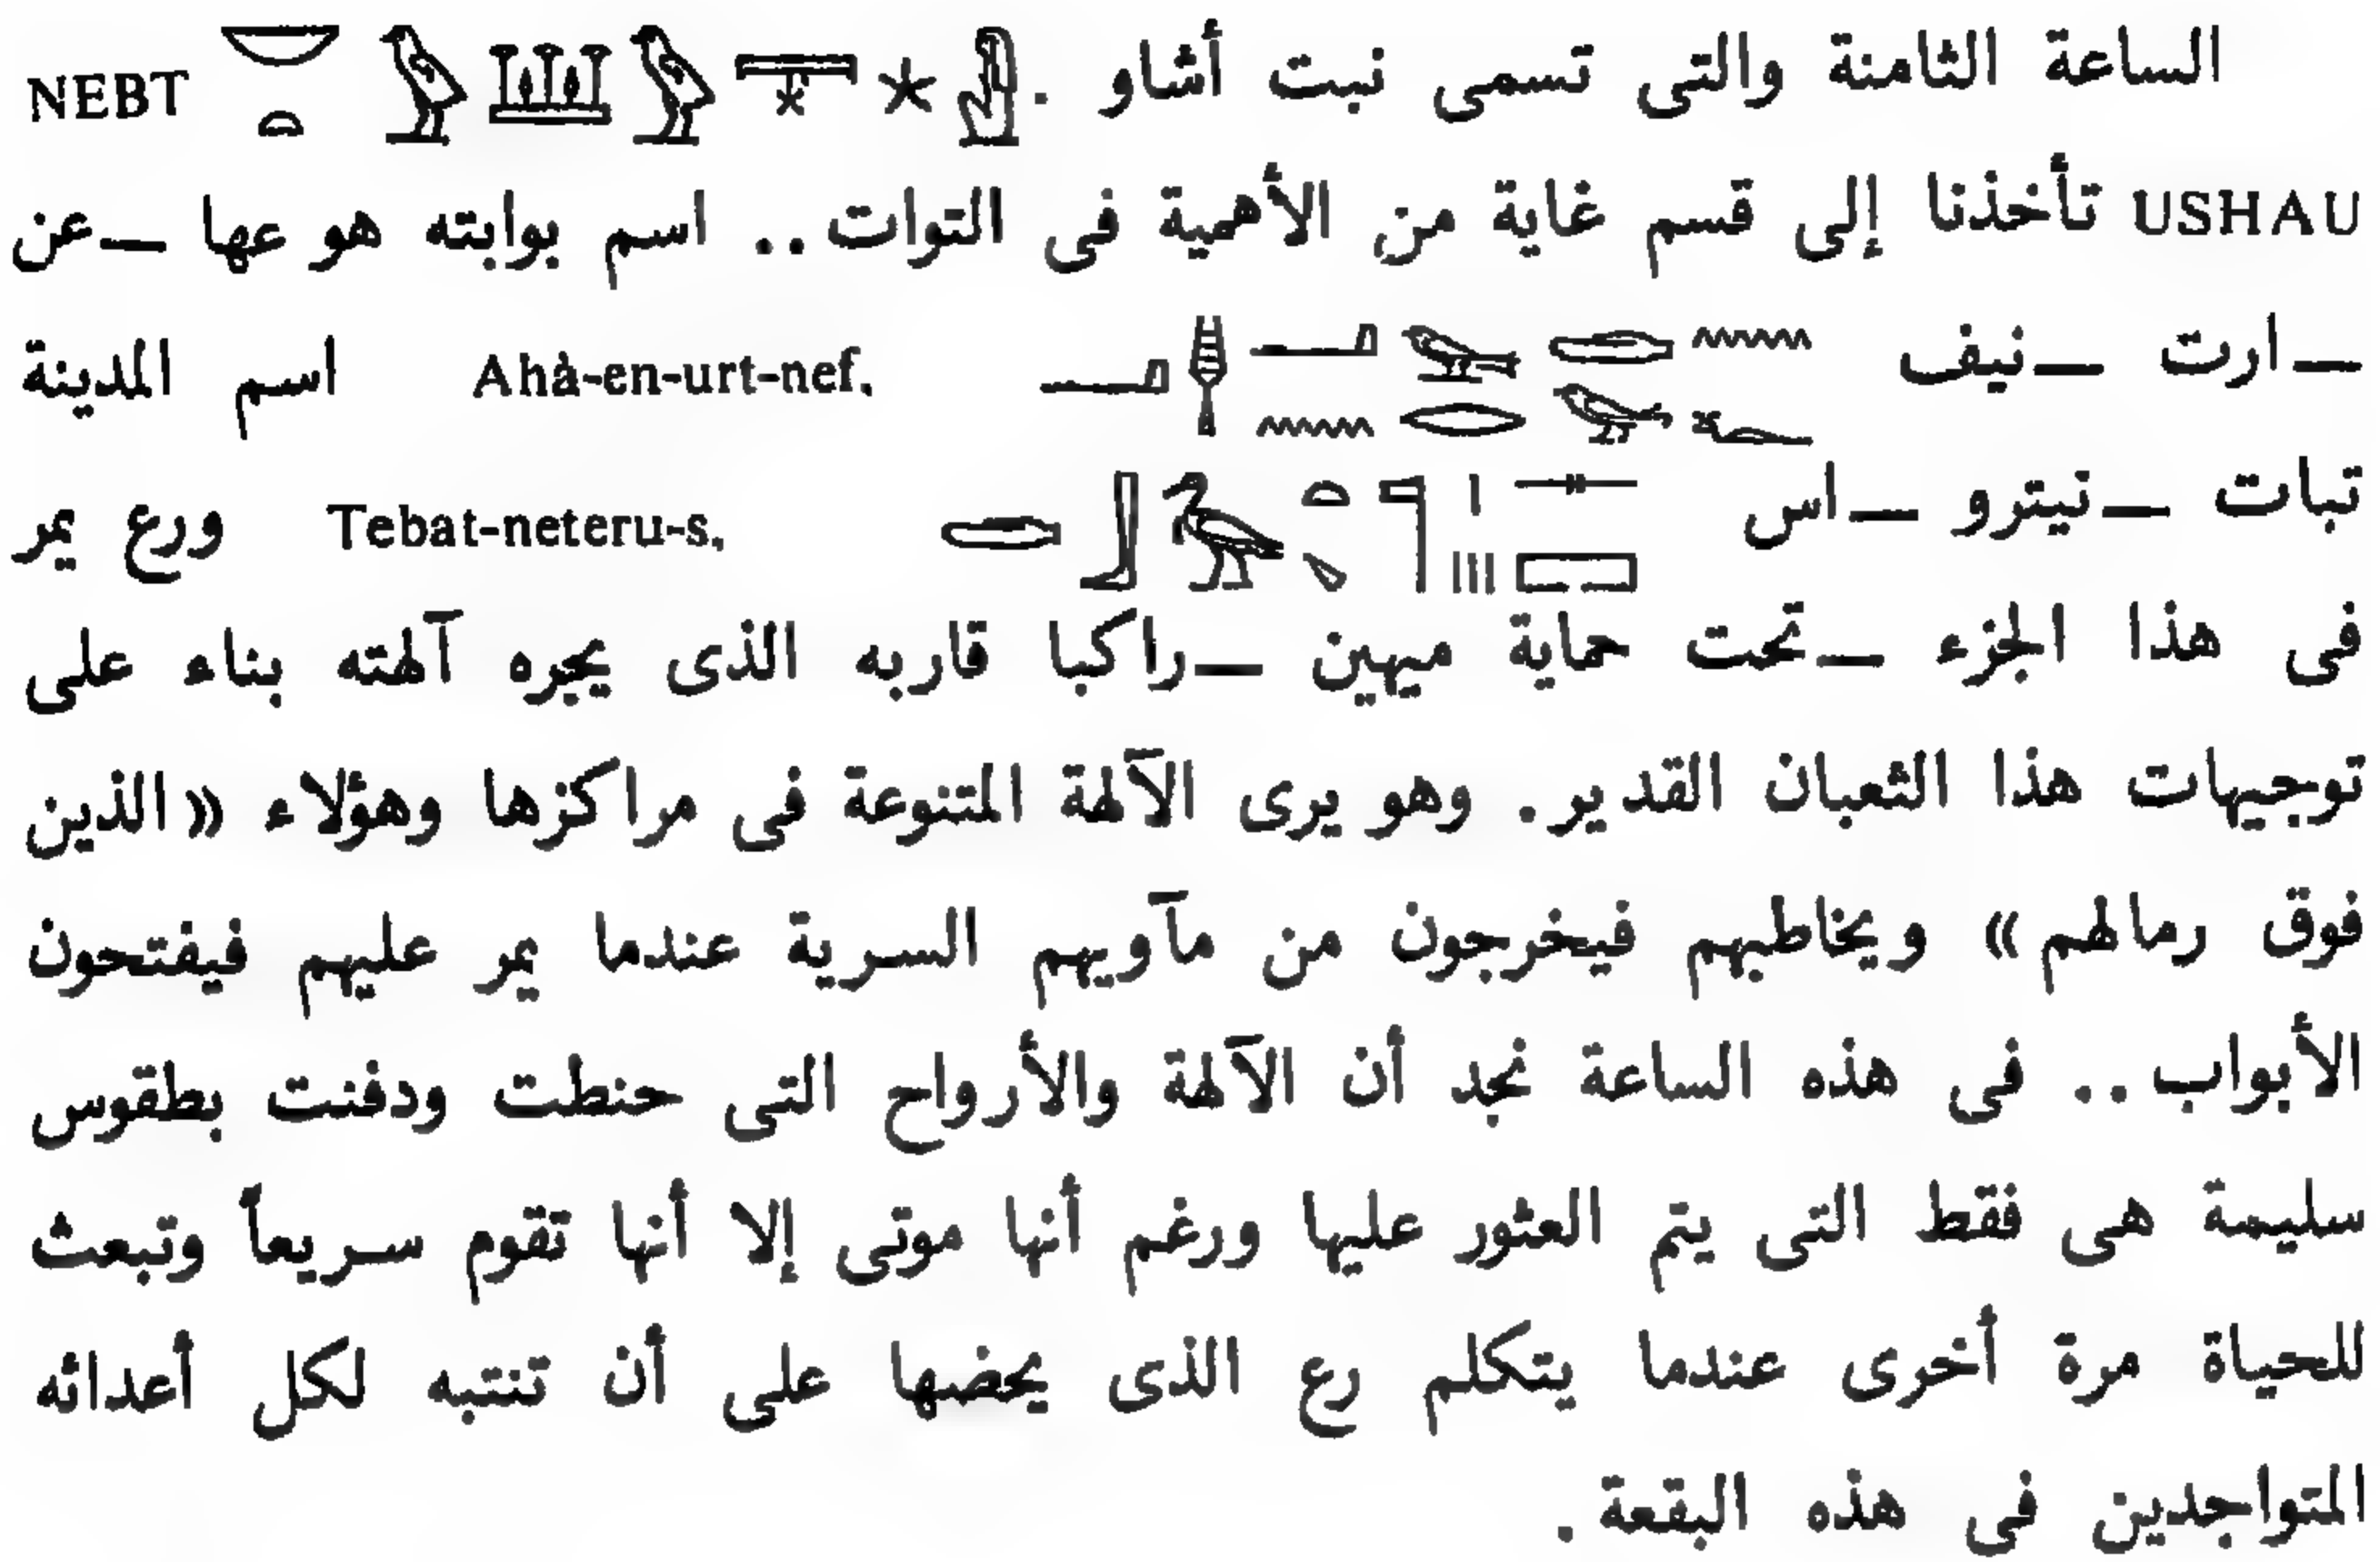 الساعة الثامنة والتى تسمى نبت أشاو . NEBT
USHAU تأخذنا إلى قسم غاية من الأهمية فى التوات .. اسم بوابته هو عها —عن
—ارت —نيف Ahà-en-urt-nef. اسم المدينة
تبات —نيترو —اس Tebat-neteru-s. ورع يمر
فى هذا الجزء —تحت حماية ميهين —راكبا قاربه الذى يجره آلهته بناء على
توجيهات هذا الثعبان القدير . وهو يرى الآلهة المتنوعة فى مراكزها وهؤلاء « الذين
فوق رمالهم » ويخاطبهم فيخرجون من مآويهم السرية عندما يمر عليهم فيفتحون
الأبواب .. فى هذه الساعة نجد أن الآلهة والأرواح التى حنطت ودفنت بطقوس
سليمة هى فقط التى يتم العثور عليها ورغم أنها موتى إلا أنها تقوم سريعاً وتبعث
للحياة مرة أخرى عندما يتكلم رع الذى يحضها على أن تنتبه لكل أعدائه
المتواجدين فى هذه البقعة .